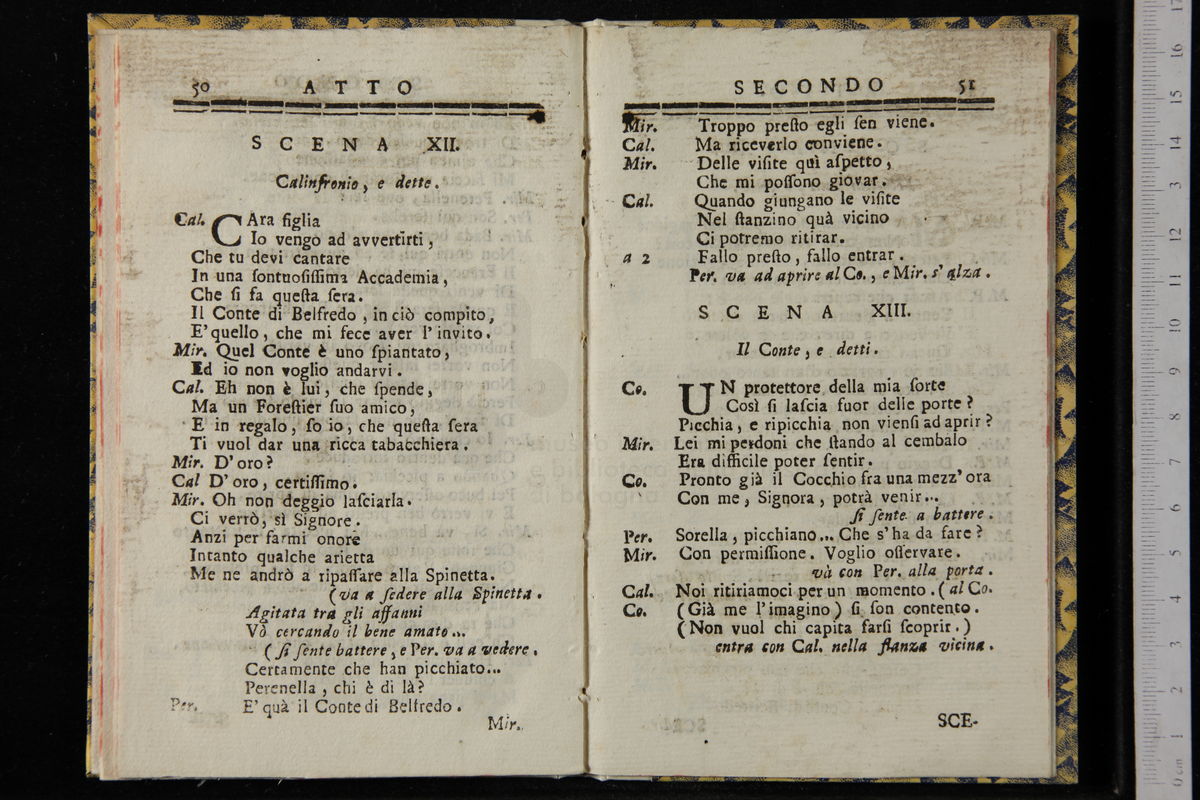 50 ATTO
SCENA XII.
Calinfronio, e dette.
Cal. CAra figlia
Io vengo ad avvertirti,
Che tu devi cantare
In una ſontuoſiſſima Accademia,
Che ſi fa queſta ſera.
Il Conte di Belfredo, in ciò compito,
E' quello, che mi fece aver l'invito.
Mir. Quel Conte è uno ſpiantato,
Ed io non voglio andarvi.
Cal. Eh non è lui, che ſpende,
Ma un Foreſtier ſuo amico,
E in regalo, ſo io, che queſta ſera
Ti vuol dar una ricca tabacchiera.
Mir. D'oro?
Cal D'oro, certiſſimo.
Mir. Oh non deggio laſciarla.
Ci verrò, sì Signore.
Anzi per farmi onore
Intanto qualche arietta
Me ne andrò a ripaſſare alla Spinetta.
(va a ſedere alla Spinetta.
Agitata tra gli affanni
Vò cercando il bene amato...
(ſi ſente battere, e Per. va a vedere.
Certamente che han picchiato...
Perenella, chi è di là?
Per. E' quà il Conte di Belfredo.
Mir.
SECONDO 51
Mir. Troppo preſto egli ſen viene.
Cal. Ma riceverlo conviene.
Mir. Delle viſite quì aſpetto,
Che mi poſſono giovar.
Cal. Quando giungano le viſite
Nel ſtanzino quà vicino
Ci potremo ritirar.
a 2 Fallo preſto, fallo entrar.
Per. va ad aprire al Co., e Mir. s'alza.
SCENA XIII.
Il Conte, e detti.
Co. UN protettore della mia ſorte
Così ſi laſcia fuor delle porte?
Picchia, e ripicchia non vienſi ad aprir?
Mir. Lei mi perdoni che ſtando al cembalo
Era difficile poter ſentir.
Co. Pronto già il Cocchio fra una mezz'ora
Con me, Signora, potrà venir...
ſi ſente a battere.
Per. Sorella, picchiano... Che s'ha da fare?
Mir. Con permiſſione. Voglio oſſervare.
và con Per. alla porta.
Cal. Noi ritiriamoci per un momento. (al Co.
Co. (Già me l'imagino) ſi ſon contento.
(Non vuol chi capita farſi ſcoprir.)
entra con Cal. nella ſtanza vicina.
SCE-